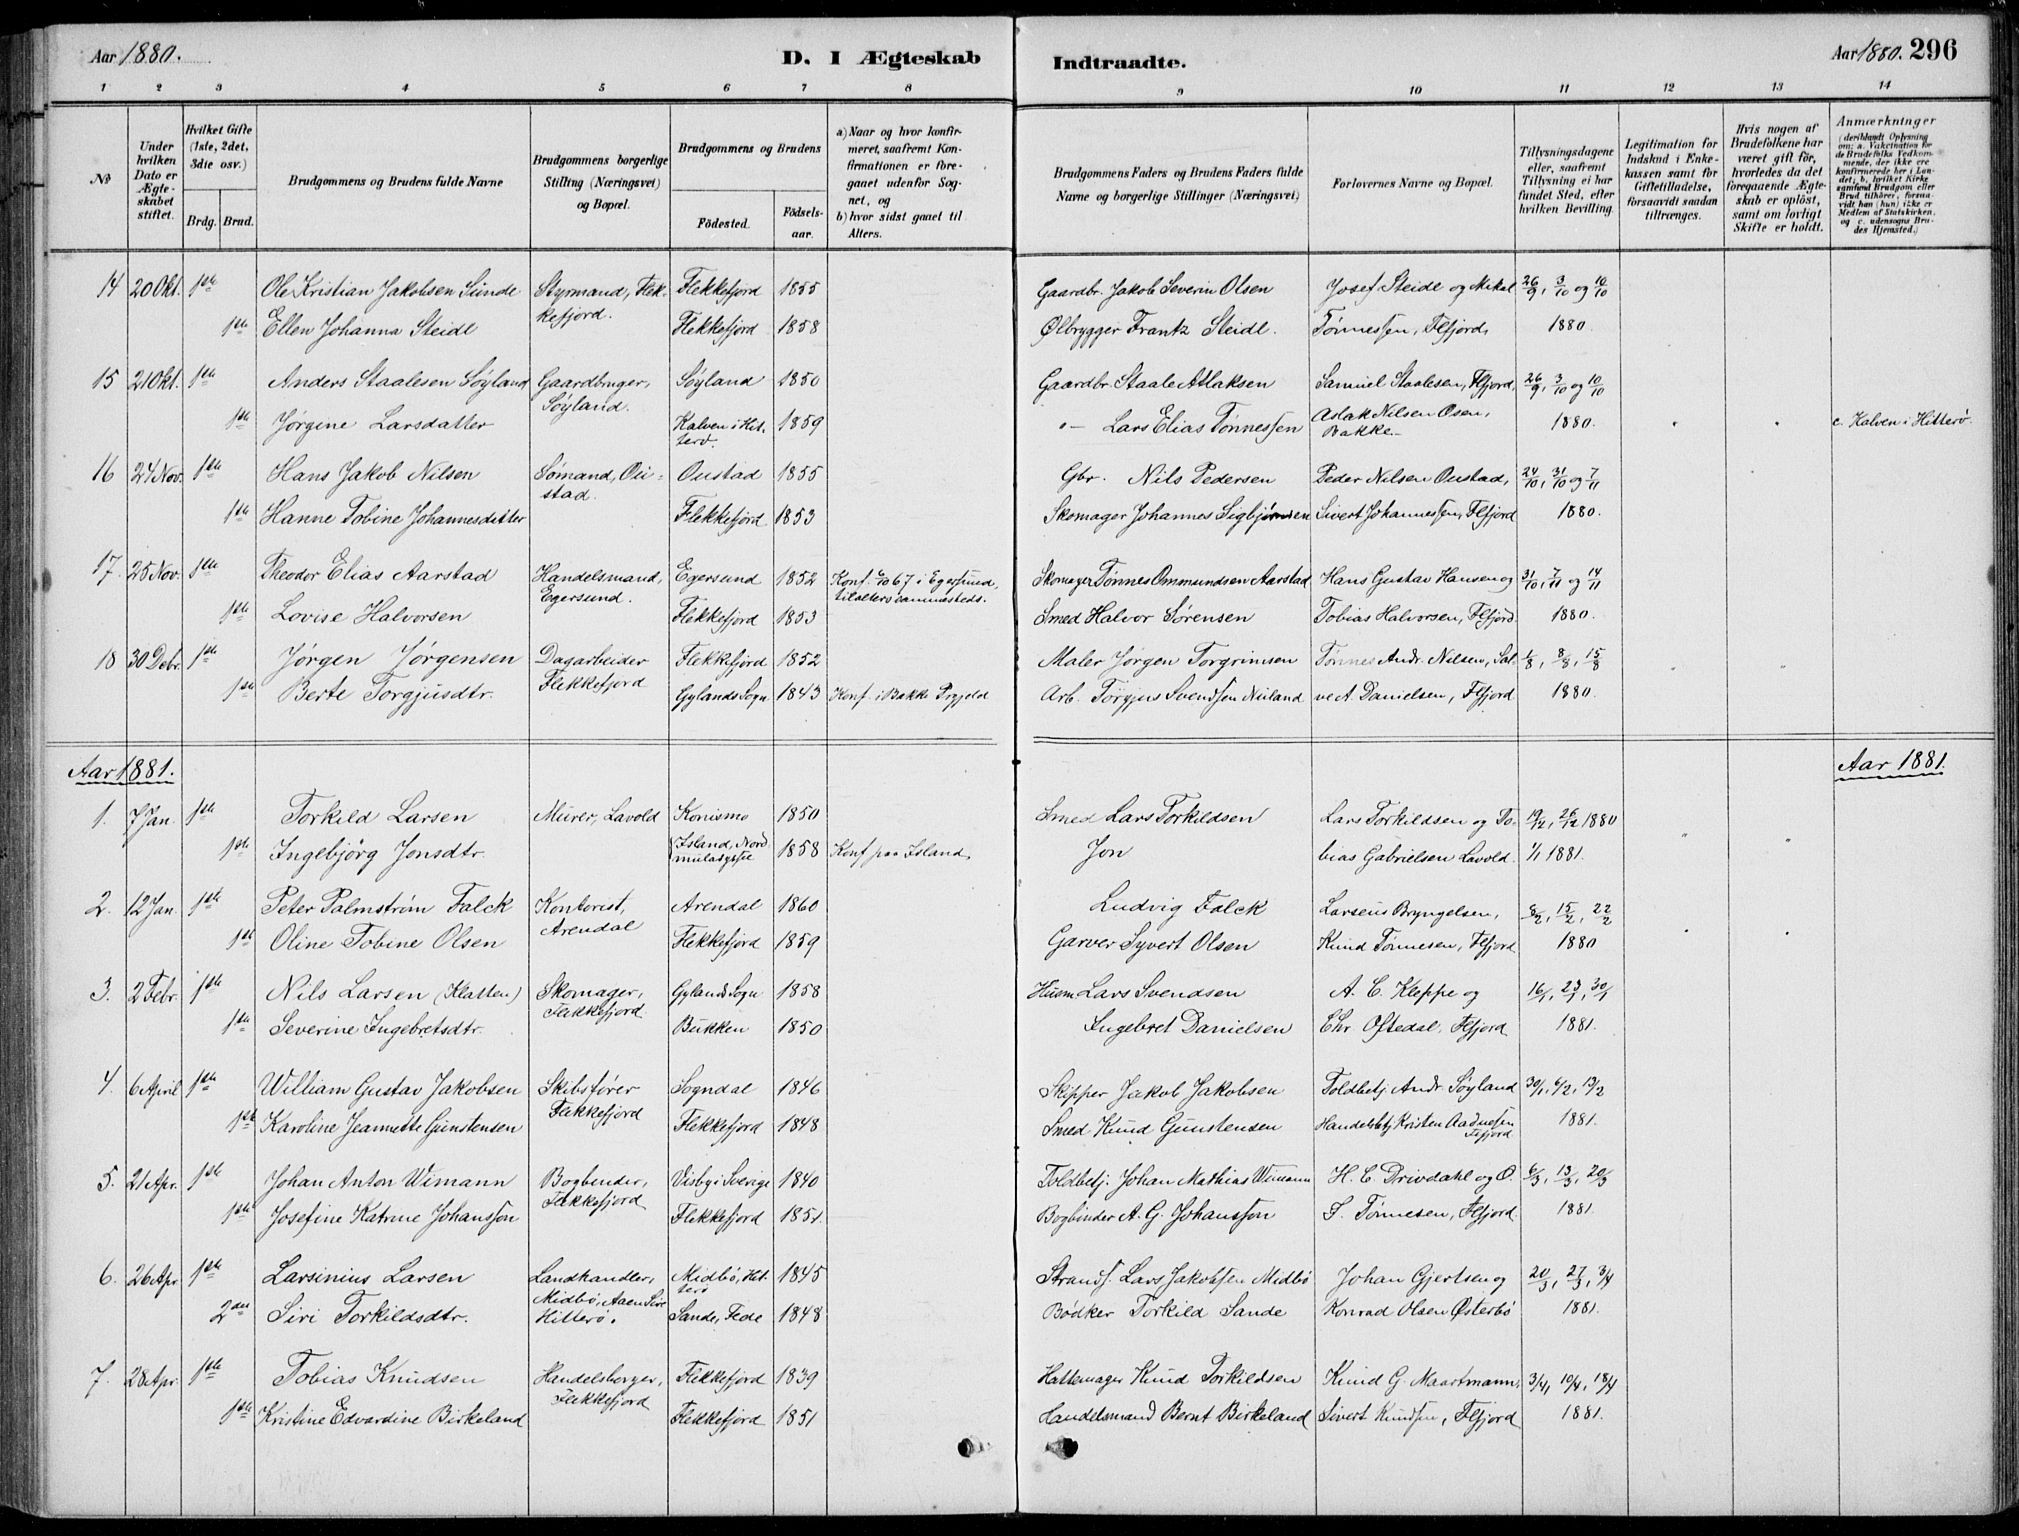 Aar 1880. D. I Ægteskab Indtraadte. Aar 1880. 296
1 2 3 4 5 6 7 8 9 10 11 12 13 14
No
Under hvilken Dato er Ægteskabet stiftet.
Hvilket Gifte (1ste, 2det, 3die osv.) Brdg. Brud.
Brudgommens og Brudens fulde Navne
Brudgommens borgerlige Stilling (Næringsvei) og Bopæl.
Brudgommens og Brudens Födested. Födsels-aar.
a) Naar og hvor konfirmeret, saafremt Konfirmationen er foregaaet udenfor Sognet, og
b) hvor sidst gaaet til Alters.
Brudgommens Faders og Brudens Faders fulde Navne og borgerlige Stillinger (Næringsvei)
Forlovernes Navne og Bopæl.
Tillysningsdagene eller, saafremt Tillysning ei har fundet Sted, efter hvilken Bevilling.
Legitimation for Indskud i Enkekassen samt for Giftetilladelse, forsaavidt saadan tiltrænges.
Hvis nogen af Brudefolkene har været gift för, hvorledes da det foregaaende Ægteskab er oplöst, samt om lovligt Skifte er holdt.
Anmærkninger (deriblandt Oplysning om: a. Vakcination for de Brudefolks Vedkommende, der ikke ere konfirmerede her i Landet; b. hvilket Kirkesamfund Brudgom eller Brud tilhörer, foresavidt han (hun) ikke er Medlem af Statskirken, og c. udensogns Brudes Hjemsted.)
14 20 Okt. 1ste Ole Kristian Jakobsen Sünde Styrmand, Flekkefjord. Flekkefjord 1855 Gaardbr. Jakob Severin Olsen Josef Steidl og Mikal 26/9, 3/10 og 10/10
1ste Ellen Johanna Steidl Flekkefjord 1858 Ølbrygger Frantz Steidl. Tønnessen, Flfjord, 1880.
15 21 Okt. 1ste Anders Staalesen Søyland Gaardbruger, Søyland. Søyland 1850 Gaardbr. Staale Atlaksen Samuel Staalesen, Flfjord, 26/9, 3/10 og 10/10
1ste Jørgine Larsdatter Kalven i Hitterø. 1859 "– Lars Elias Tønnessen Aslak Nilsen Osen, Bakke– 1880. c. Kalven i Hitterø.
16 24 Nov. 1ste Hans Jakob Nilsen Sømand, Oustad. Oustad 1855 Gbr. Nils Pedersen Peder Nilsen Oustad, 24/10, 31/10 og 7/11
1ste Hanne Tobine Johannesdatter Flekkefjord 1853 Skomager Johannes Sigbjørnsen Sivert Johannessen, Flfjord 1880.
17. 25 Nov. 1ste Theodor Elias Aarstad Handelsmand, Egersund. Egersund 1852 Konf. 6/10 67 i Egersund, tilalters sammesteds. Skomager Tønnes Ommundsen Aarstad Hans Gustav Hansen og 31/10, 7/11 og 14/11
1ste Lovise Halvorsen Flekkefjord 1853 Smed Halvor Sørensen Tobias Halvorsen, Flfjord. 1880.
18 30 Debr. 1ste Jørgen Jørgensen Dagarbeider Flekkefjord Flekkefjord 1852 Maler Jørgen Torgrimsen Tønnes Andr. Nilsen, Sal- 1/8, 8/8, 15/8
1ste Berte Torgjusdtr. Gylands Sogn 1843 Konf. i Bakke Prgjeld Arb. Torgjus Svendsen Nuland ve A. Danielsen, Flfjord 1880.
Aar 1881. Aar 1881.
1. 7 Jan. 1ste Torkild Larsen Murer, Lavold Konismo 1850 Smed Lars Torkildsen Lars Torkildsen og To- 19/12, 26/12 1880
1ste Ingebjørg Jonsdtr. Island, Nordmulasysse 1858 Konf paa Island, Jon bias Gabrielsen Lavold. 1/1 1881.
2. 12 Jan. 1ste Peter Palmstrøm Falck Kontorist, Arendal Arendal 1860 Ludvig Falck Larseus Bryngelsen, 8/2, 15/2, 22/2
1ste Oline Tobine Olsen Flekkefjord 1859 Garver Syvert Olsen Knud Tønnesen, Flfjord 1880
3. 2 Febr. 1ste Nils Larsen (Klatten) Skomager, Flekkefjord. Gylands Sogn 1858 Husm. Lars Svendsen A. C. Kleppe og 16/1, 23/1, 30/1
1ste Severine Ingebretsdtr. Bukken 1850 Ingebret Danielsen Chr. Oftedal, Flfjord 1881.
4. 6 April 1ste William Gustav Jakobsen Skibsfører Flekkefjord Sogndal 1846 Skipper Jakob Jakobsen Toldbetj. Andr. Søyland 30/1, 6/2, 13/2
1ste Karoline Jeannette Gunstensen Flekkefjord 1848 Smed Knud Gunstensen Handelsbetj. Kristen Aadnesen Flfjord 1881.
5. 21 Apr. 1ste Johan Anton Wimann Bogbinder, Flekkefjord Visby i Sverige 1840 Toldbetj. Johan Mathias Wimann H. C. Drivdahl og O. 6/3, 13/3, 20/3
1ste Josefine Katrine Johanssen Flekkefjord 1851 Bogbinder A. G. Johanssen F. Tønnesen, Flfjord. 1881.
6. 26 Apr 1ste Larsinius Larsen Landhandler, Midbø, Aaen Sire Hitterø. Midbø, Hitterø 1845 Strands. Lars Jakobsen Midbø Johan Gjertsen og 20/3, 27/3, 3/4
2den Siri Torkildsdtr. Sande, Fede 1848 Bødker Torkild Sande Konrad Olsen Østerbø 1881.
7. 28 Apr. 1ste Tobias Knudsen Handelsborger, Flekkefjord Flekkefjord 1839 Hattemager Knud Torkildsen Knud G. Maartmann, 3/4, 10/4, 18/4
1ste Kristine Edvardine Birkeland Flekkefjord 1851 Handelsmand Bernt Birkeland Sivert Knudsen, Flfjord 1881.